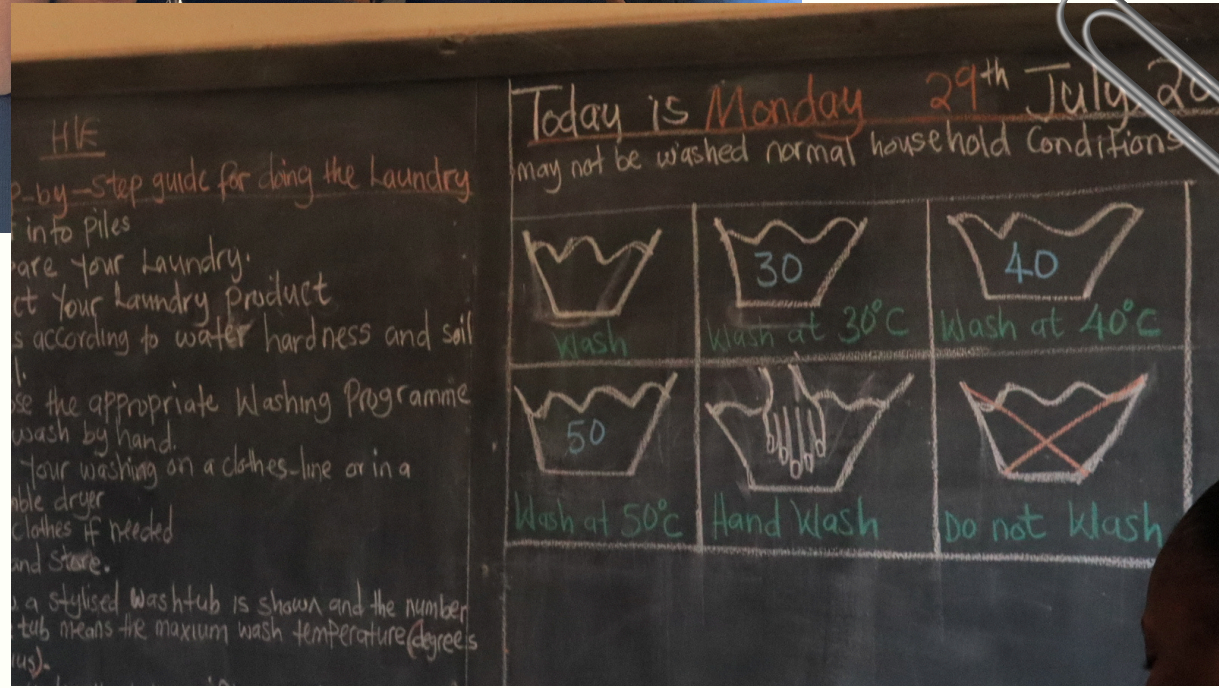 HE
-by-Step guide for doing the Laundry
into piles
are Your Laundry.
ct Your Laundry Product
s according to water hardness and soil
l.
se the appropriate Washing Programme
wash by hand.
Your washing on a clothes-line or in a
ble dryer
clothes if needed
and Store.
a stylised washtub is shown and the number
tub means the maxium wash temperature (degrees
us).
Today is Monday 29th July, 20
may not be washed normal household Conditions
30
40
Wash
Wash at 30°C
Wash at 40°C
50
Wash at 50°C
Hand Wash
Do not Wash